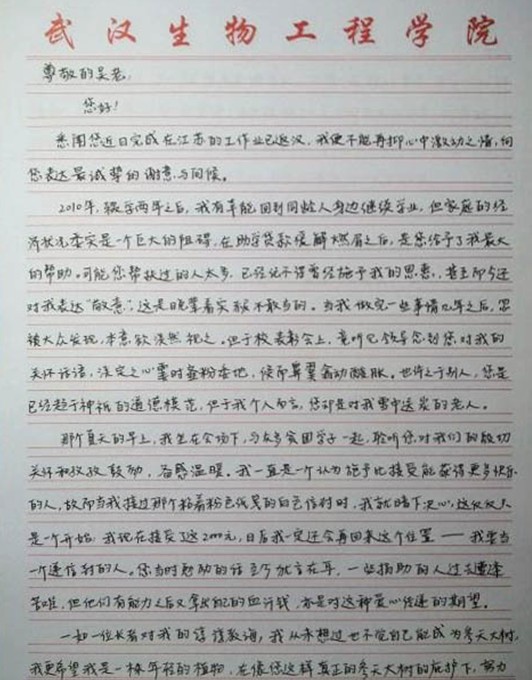 武汉生物工程学院
尊敬的吴老:
您好!
悉闻您近日完成在江苏的工作业已返汉, 我便不能再抑心中激动之情, 向
您表达最诚挚的谢意与问候。
2010年, 辍学两年之后, 我有幸能回到同龄人身边继续学业, 但家庭的经
济状况委实是一个巨大的阻碍, 在助学贷款缓解燃眉之后, 是您给予了我最大
的帮助。可能您帮扶过的人太多, 已经记不得曾经施予我的恩惠, 甚至即今还
对我表达“敬意”, 这是晚辈着实报不敢当的。当我做完一些事情几年之后, 恐
被大众发现, 本意欲淡然视之。但于校表彰会上, 竟听见领导念到您对我的
关怀话语, 淡定之心霎时齑粉委地, 倏而鼻翼翕动酸胀。也许之于别人, 您是
已经趋于神祇的道德模范, 但于我个人而言, 您却是对我雪中送炭的老人。
那个夏天的早上, 我坐在会场下, 与众多贫困学子一起, 聆听您对我们的殷切
关怀和孜孜鼓励, 备感温暖。我一直是个认为施予比接受能获得更多快乐
的人, 故而当我接过那个粘着粉色纸笺的白色信封时, 我就暗下决心, 这仅仅只
是一个开始: 我现在接受了这2000元, 日后我一定还会再回来这个位置 —— 我要当
一个递信封的人。您当时勉励的话至今犹言在耳, 一些捐助的人过去遭逢
苦难, 但他们有能力之后又拿出自己的血汗钱, 亦是对这种爱心传递的期望。
一如一位长者对我的谆谆教诲, 我从未想过也不觉自己能成为参天大树,
我更希望我是一株年轻的植物, 在像您这样真正的参天大树的庇护下, 努力